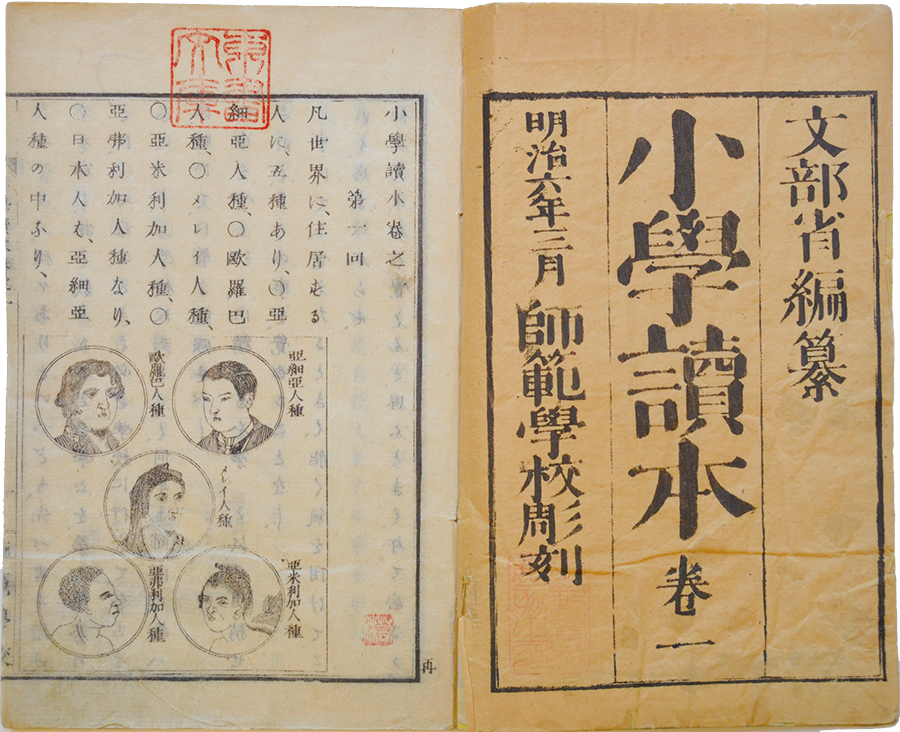 文部省編纂
小學讀本 卷一
明治六年三月 師範學校彫刻
東書文庫
小學讀本卷之一
第一回
凡世界に、住居する
人に、五種あり、〇亞
細亞人種、〇歐羅巴
人種、〇メレイ人種、
〇亞米利加人種、〇
亞弗利加人種なり、
〇日本人は、亞細亞
人種の中なり、
亞細亞人種
歐羅巴人種
メレイ人種
亞米利加人種
亞弗利加人種
再